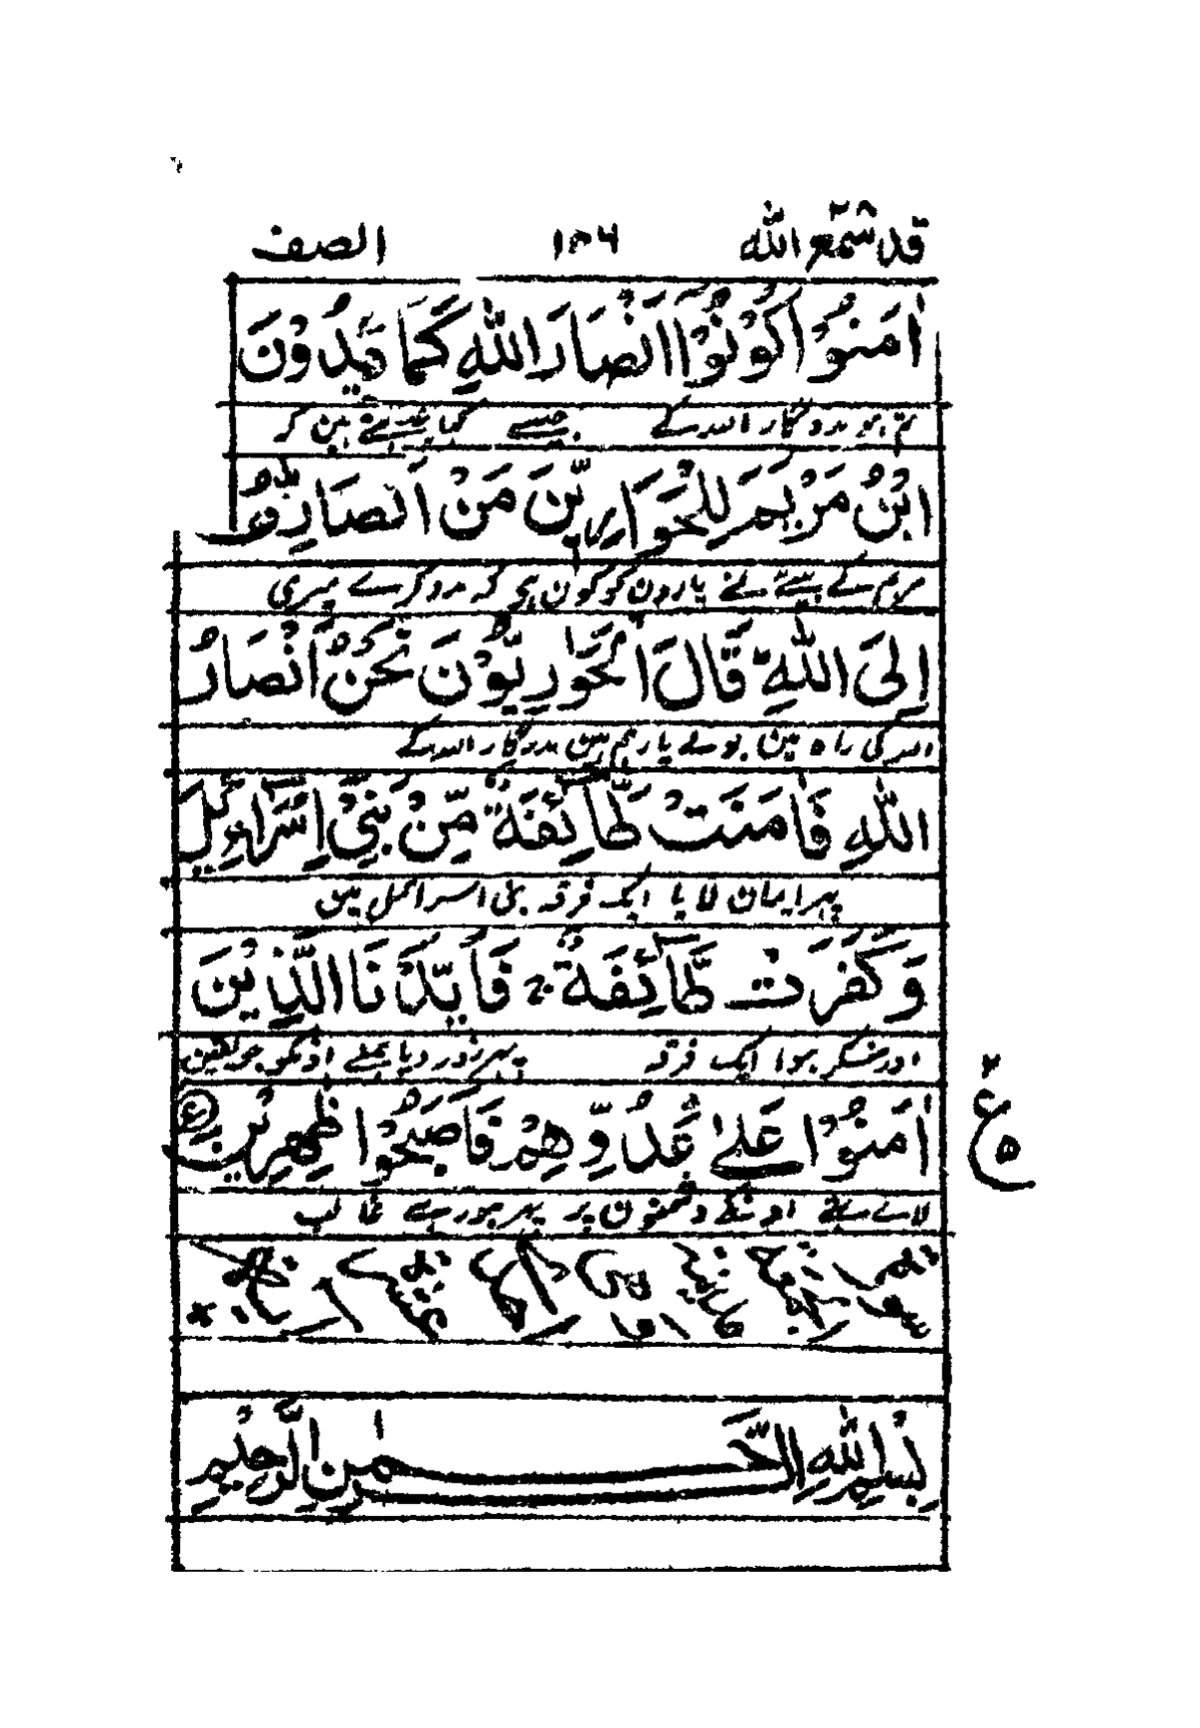 قد سمع الله ٢٨ ١٥٦ الصف
اٰمَنُوْا كُوْنُوْٓا اَنْصَارَ اللّٰهِ كَمَا
تم ہو مددگار اللہ کے جیسے کہا
ابْنُ مَرْيَمَ لِلْحَوَارِيّٖنَ مَنْ اَنْصَارِيْٓ
مریم کے بیٹے نے یارون کو کون ہی کہ مدد کرے میری
اِلَى اللّٰهِ قَالَ الْحَوَارِيُّوْنَ نَحْنُ اَنْصَارُ
اللہ کی راہ مین بولے یار ہم ہین مددگار اللہ کے
اللّٰهِ فَاٰمَنَتْ طَّآئِفَةٌ مِّنْ بَنِيْٓ اِسْرَآءِيْلَ
پہر ایمان لایا ایک فرقہ بنی اسرائیل مین
وَكَفَرَتْ طَّآئِفَةٌ فَاَيَّدْنَا الَّذِيْنَ
اور منکر ہوا ایک فرقہ پہر زور دیا ہمنے اونکو جو یقین
اٰمَنُوْا عَلٰى عَدُوِّهِمْ فَاَصْبَحُوْا ظٰهِرِيْنَ
لائے تھے اونکے دشمنون پر پہر ہو رہے غالب
ع ٢ ٥
بِسْمِ اللّٰهِ الرَّحْمٰنِ الرَّحِيْمِ